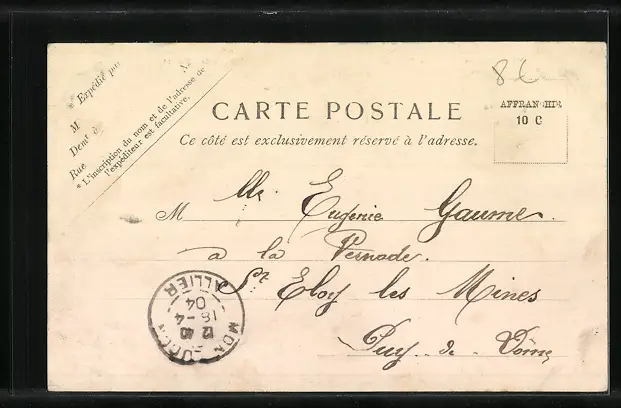 86
* Expédié par
M
Demt à
Rue
* L'inscription du nom et de l'adresse de
l'expéditeur est facultative.
CARTE POSTALE
Ce côté est exclusivement réservé à l'adresse.
AFFRANCHIR
10 C
M Mlle Eugenie Gaume
a la Vernade.
St Eloy les Mines
Puy de Dôme
ALLIER
12 40
18 - 4
04